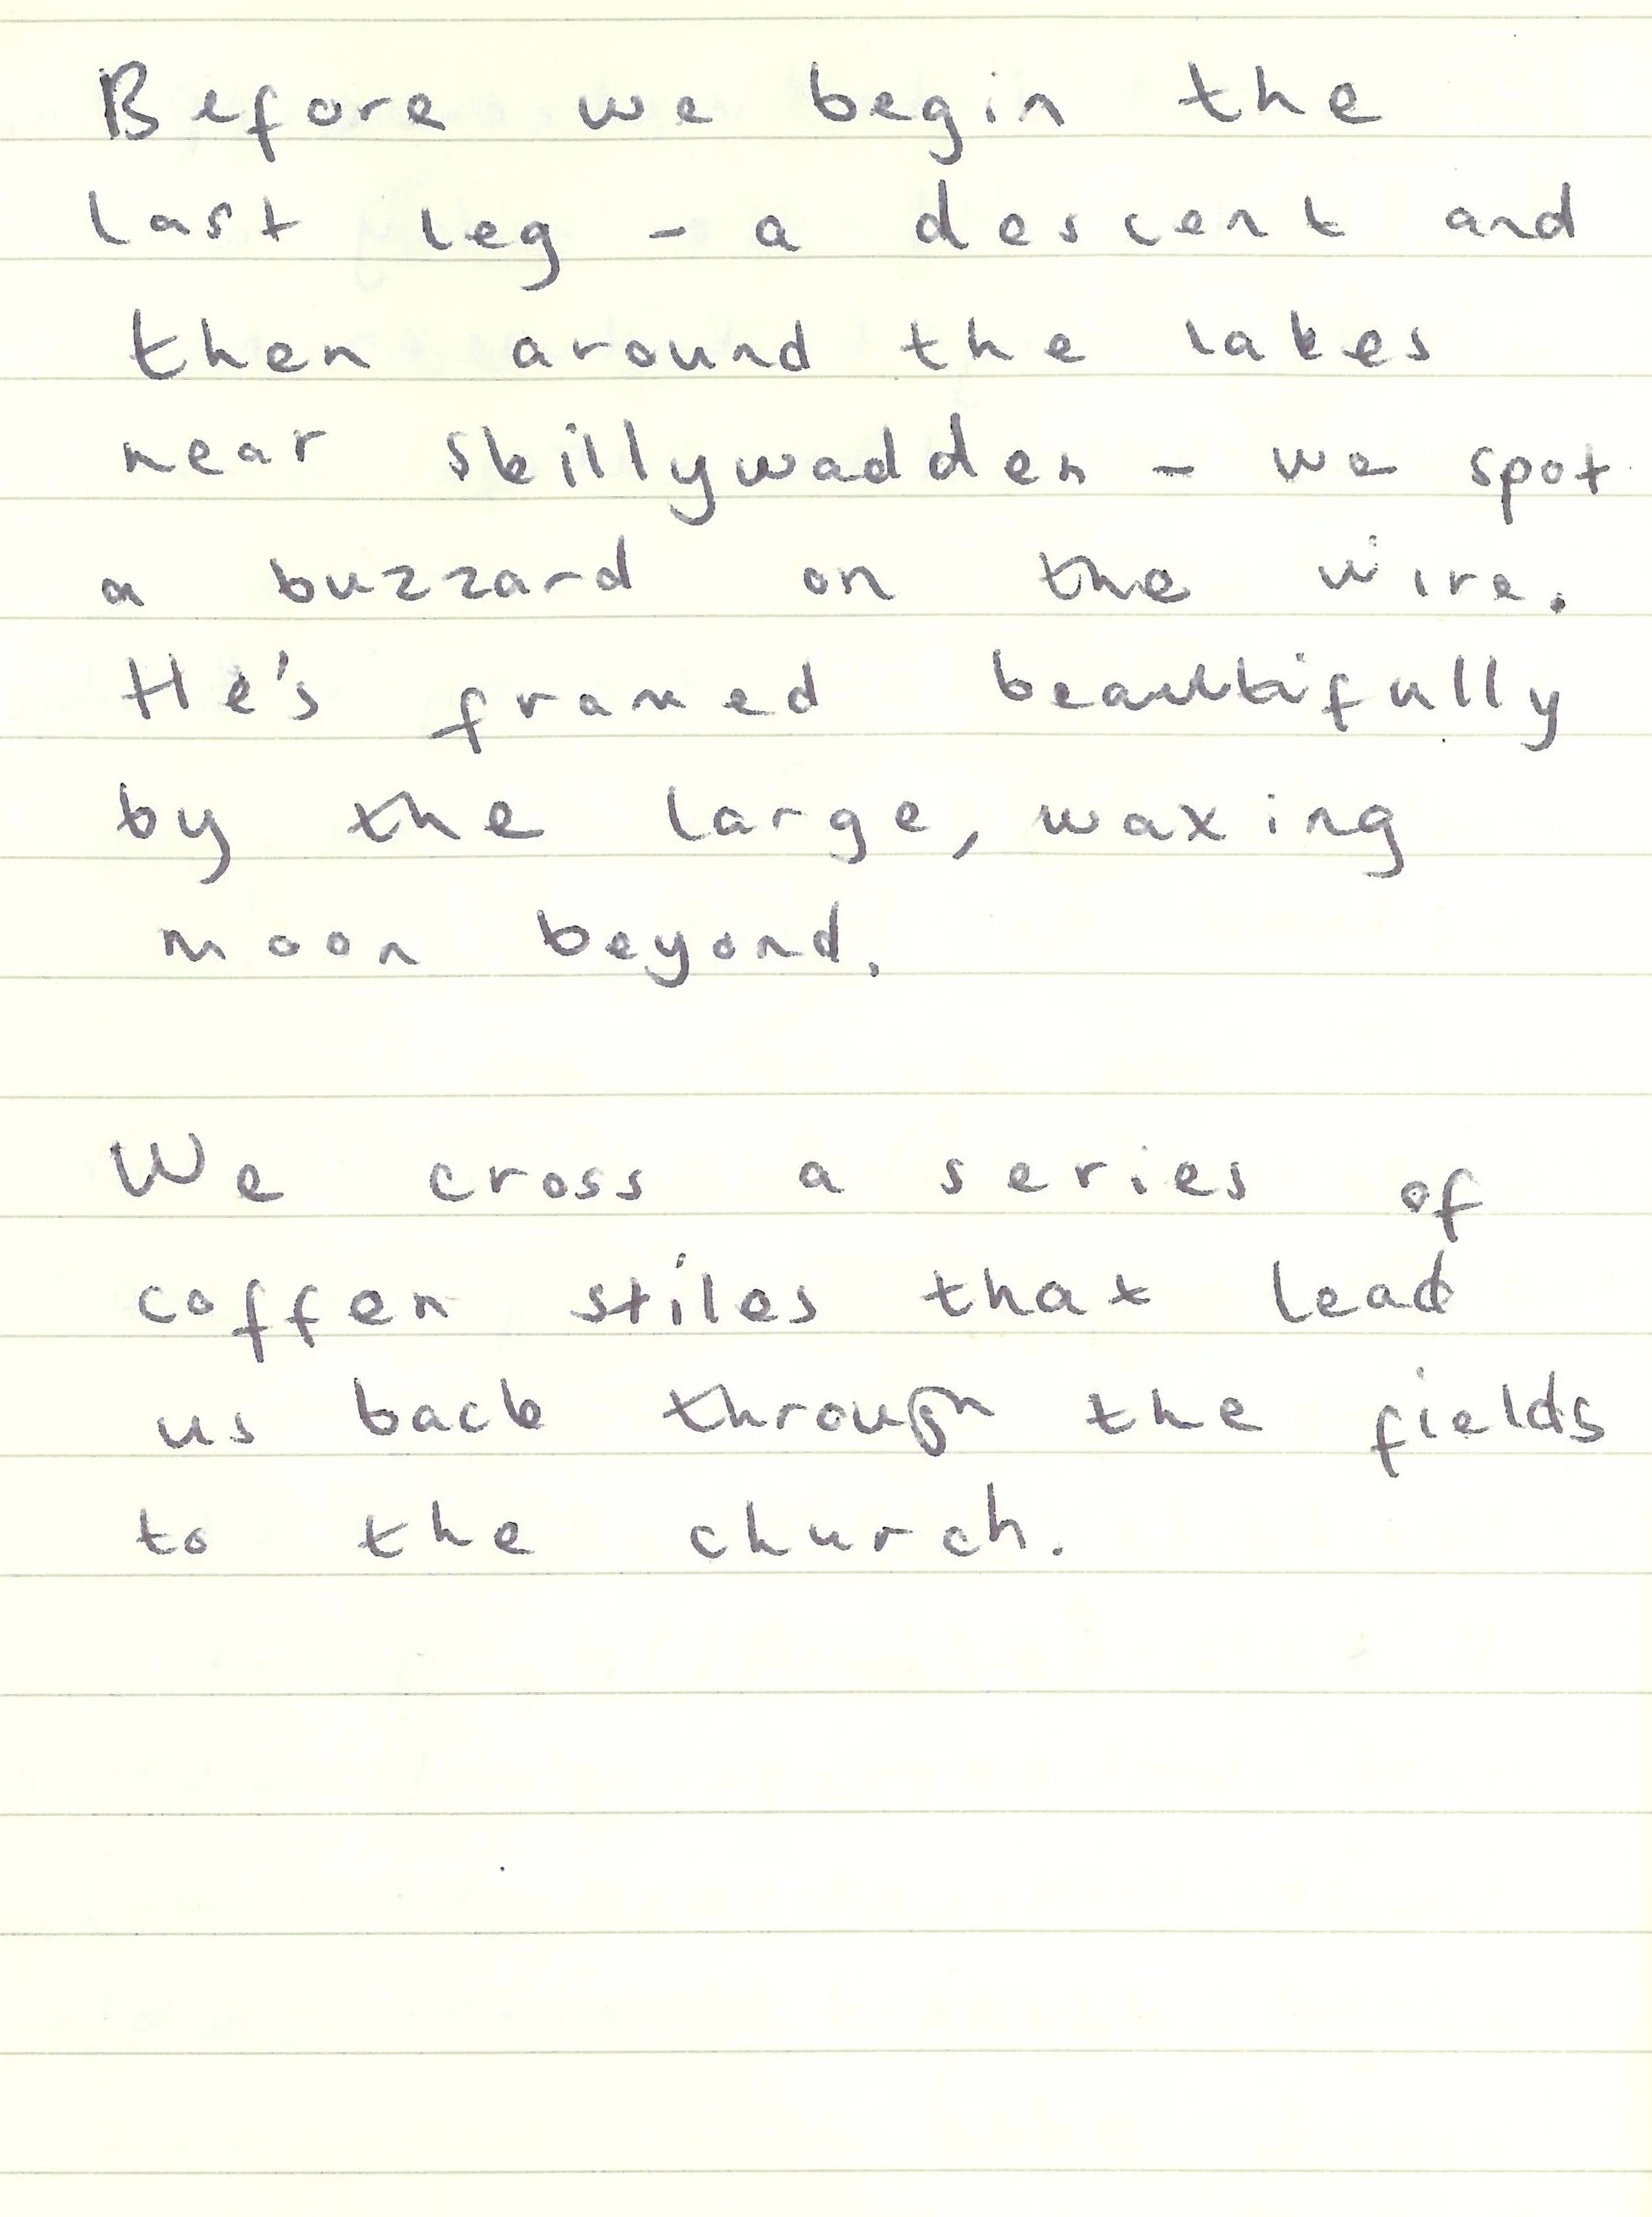 Before we begin the
last leg - a descent and
then around the lakes
near Skillywadden - we spot
a buzzard on the wire.
He's framed beautifully
by the large, waxing
moon beyond.
We cross a series of
coffen stiles that lead
us back through the fields
to the church.